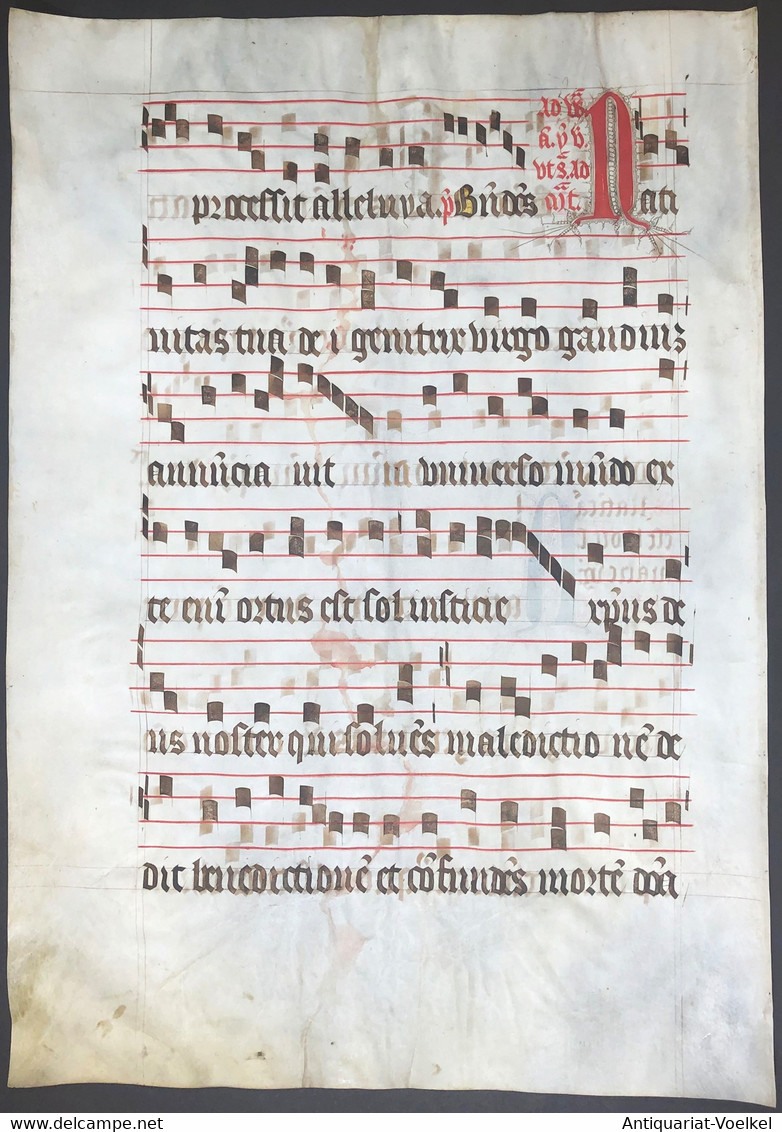 processit alleluya. p̄s Bn̄dc̄s
Ad
vt s̄. Ad
Nati
uitas tua de i genitrix virgo gaudiuȝ
annūcia uit vniuerso mūdo ex
te eni ortus est sol iusticie xp̄us de
us noster qui soluēs maledictio nē de
dit benedictionē et cōfundēs mortē dōa
Antiquariat-Voelkel